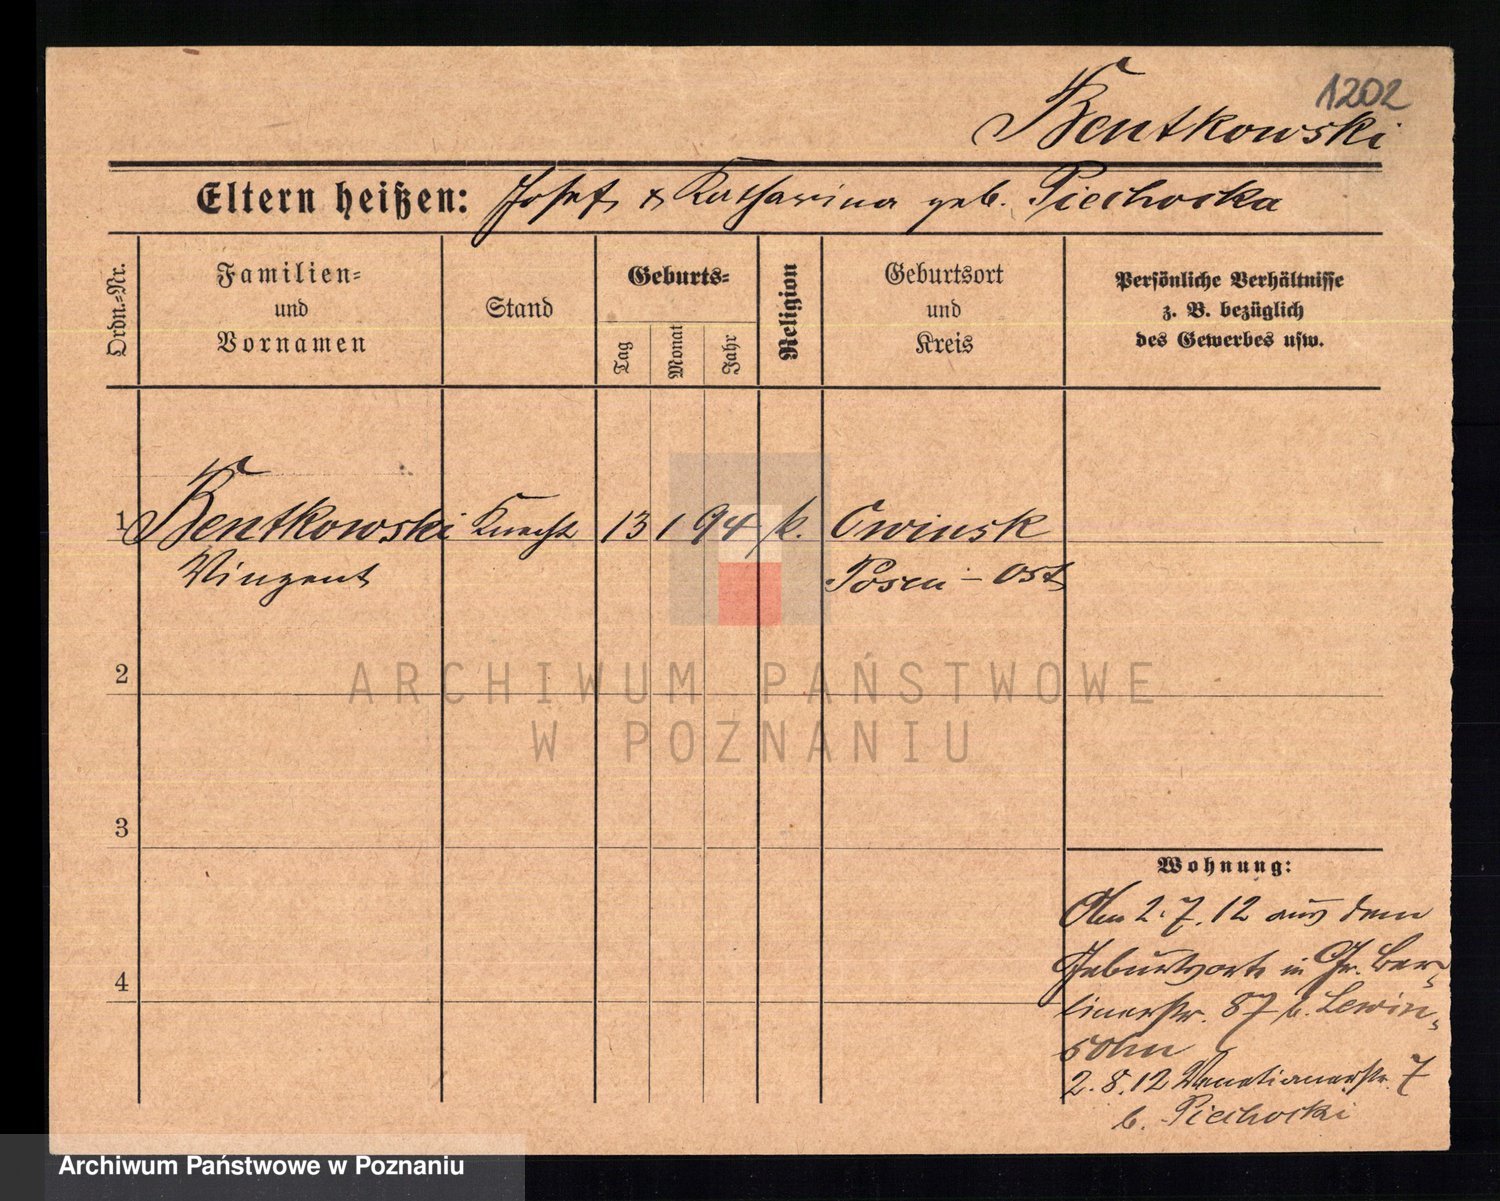 1202
Bentkowski
Eltern heißen: Josef & Katharina geb. Piechocka
Ordn.=Nr.
Familien=
und
Vornamen
Stand
Geburts=
Tag
Monat
Jahr
Religion
Geburtsort
und
Kreis
Persönliche Verhältnisse
z. B. bezüglich
des Gewerbes usw.
1 Bentkowski Knecht 13 1 94 k. Owinsk
Vinzent Posen-Ost
2
3
4
Wohnung:
Am 2.7.12 aus dem
Geburtsorte in Gr. Ber-
linerstr. 87 b. Lewin-
sohn
2.8.12 Venetianerstr. 7
b. Piechocki
ARCHIWUM PAŃSTWOWE
W POZNANIU
Archiwum Państwowe w Poznaniu